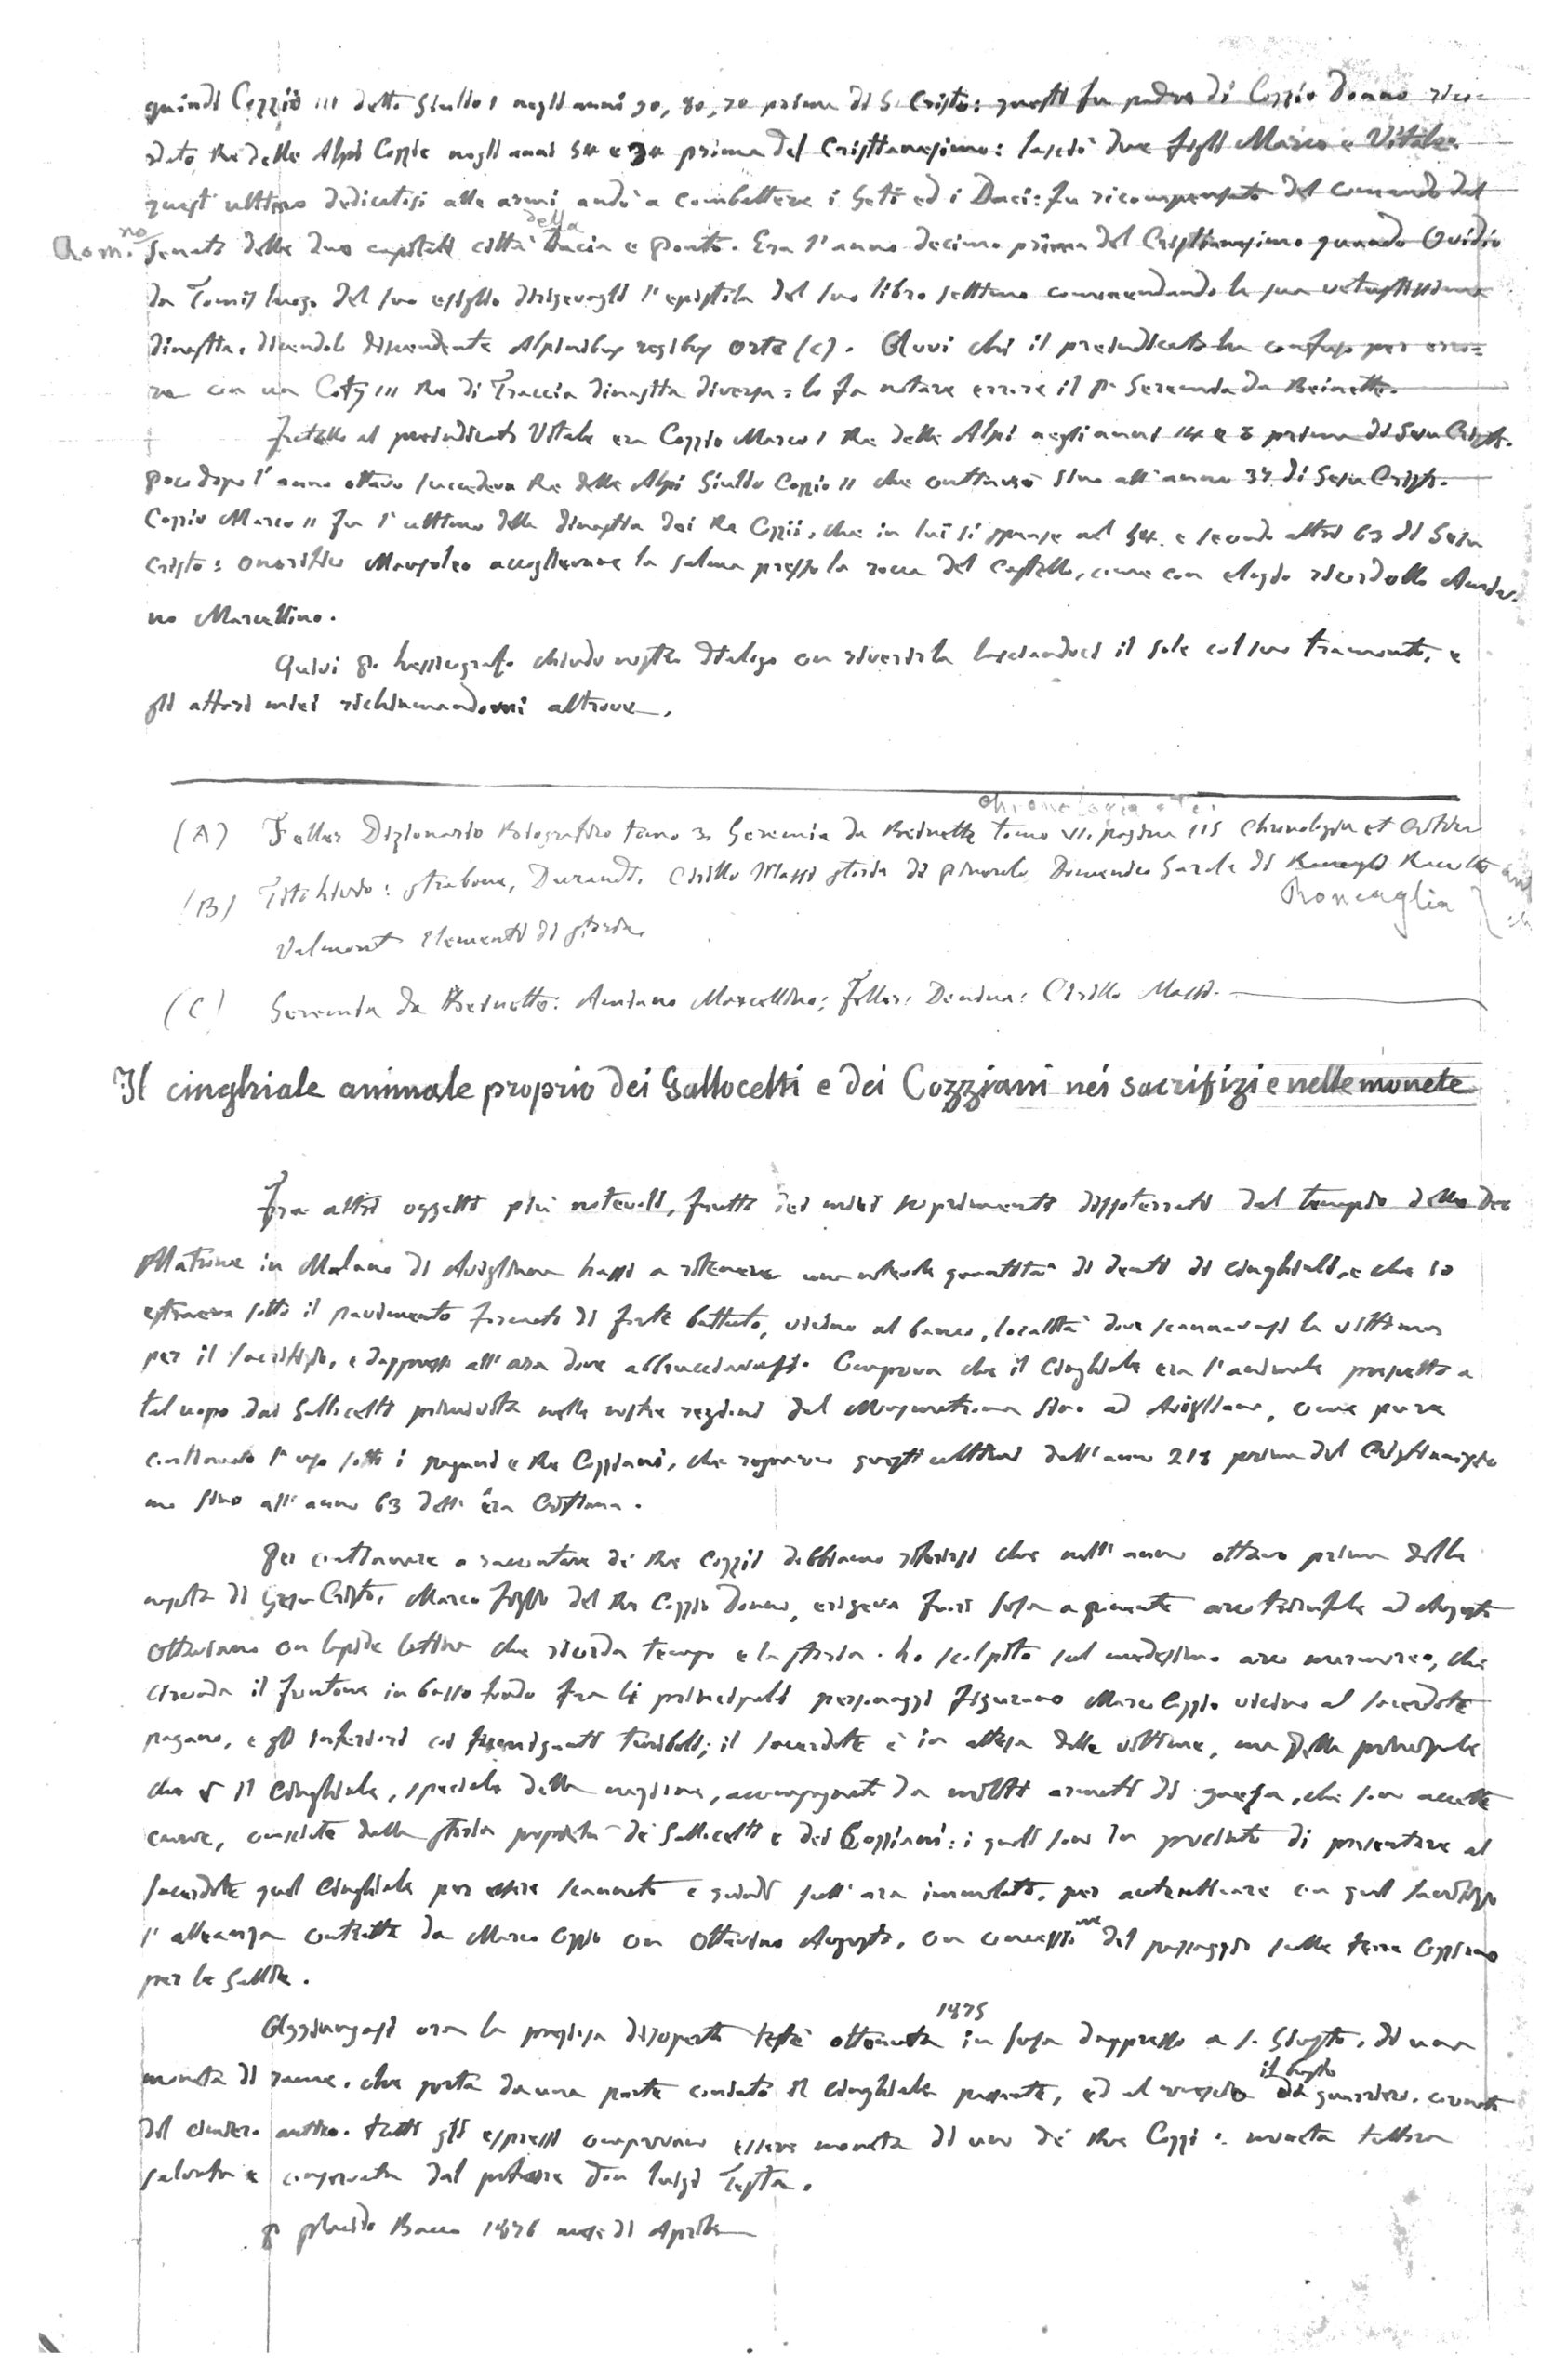 quindi Cozzio III detto Giulio I negli anni 90, 80, 70 prima di G. Cristo: questi fu padre di Cozzio Donno ricor=
dato Re delle Alpi Cozzie negli anni 54 e 34 prima del Cristianesimo: lasciò due figli Marco e Vitale:
quest'ultimo dedicatosi alle armi andò a combattere i Geti ed i Daci: fu ricompensato del comando dal
Rom.no Senato delle due capitali città della Dacia e Ponto. Era l'anno decimo prima del Cristianesimo quando Ovidio
da Tomi luogo del suo esiglio dirigevagli l'epistola del suo libro settimo commendando la sua vetustissima
dinastia, dicendolo discendente Alpinibus regibus orte (C). Avvi chi il preindicato ha confuso per erro=
re con un Coty III Re di Traccia dinastia diversa: lo fa notare errore il P. Geremia da Beinette.
Fratello al preindicato Vitale era Cozzio Marco I Re delle Alpi negli anni 14 e 8 prima di Gesù Cristo.
Poco dopo l'anno ottavo succedeva Re delle Alpi Giulio Cozio II che continuò sino all'anno 37 di Gesù Cristo.
Cozzio Marco II fu l'ultimo della dinastia dei Re Cozii, che in lui si spense nel 54. e secondo altri 63 di Gesù
Cristo: onorifico Mausoleo accoglievane la salma presso la rocca del Castello, come con elogio ricordollo Amia=
no Marcellino.
Quivi P. lessicografo chiudo nostro dialogo con riverirla lasciandoci il sole col suo tramonto, e
gli affari miei richiamandomi altrove.
(A) Feller Dizionario Biografico tomo 3. Geremia da Beinette tomo VI. pagina 115 Chronologia et
(B) Tito Livio: Strabone, Durandi, Cirillo Massi storia di Pinerolo Domenico Garola di Roncaglia
Valmont Elementi di storia.
(C) Geremia da Beinette: Amiano Marcellino; Feller: Denina: Cirillo Massi.
Il cinghiale animale proprio dei Gallocelti e dei Cozziani nei sacrifizi e nelle monete
Fra altri oggetti più notevoli, frutto dei miei scoprimenti dissotterrati dal tempio delle Dee
Matrone in Malano di Avigliana hassi a ritenere una notevole quantità di denti di cinghiali, e che io
estraeva sotto il pavimento formato di forte battuto, vicino al banco, località dove scannavasi la vittima
per il sacrifizio, e dappresso all'ara dove abbracciavasi. Comprova che il Cinghiale era l'animale prescelto a
tal uopo dai Gallocelti primi nelle nostre regioni dal sino ad Avigliana, come pure
continuato l'uso sotto i pagani e Re Cozziani, che regnarono questi ultimi dall'anno 218 prima del Cristianesi
mo sino all'anno 63 dell'êra Cristiana.
Per continuare a raccontare de' Re Cozzii dobbiamo riferirsi che nell'anno ottavo prima della
nascita di Gesù Cristo, Marco figlio del Re Cozzio Donno, erigeva fuori Susa a ponente arco trionfale ad Augusto
Ottaviano con lapide latina che ricorda tempo e la storia. Lo scolpito sul medesimo arco marmoreo, che
circonda il frontone in basso fondo fra li principali personaggi figurano Marco Cozzio vicino al sacerdote
pagano, e gli inferiori coi fumiganti turiboli; il sacerdote è in attesa delle vittime, una della principale
che è il Cinghiale, speciale della nazione, accompagnato da militi armati di guerra, che sono accette
curve, conosciute dalla storia proprietà de' Gallocelti e dei Cozziani: i quali sono in procinto di presentare al
sacerdote quel Cinghiale per essere scannato e quindi sull'ara immolato, per autenticare con quel sacrifizio
l'alleanza contratta da Marco Cozzio con Ottavino Augusto, con concessione del passaggio sulle terre Cozziane
per le Gallie.
Aggiungasi ora la preziosa discoperta testè ottenuta 1875 in Susa dappresso a S. Giusto, di una
moneta di rame, che porta da una parte coniato il cinghiale passante, ed al rovescio il busto di guerriero, coronato
del cimiero antico. Tutti gli espressi comprovano essere moneta di uno de' Re Cozzi: moneta tuttora
salvata e conservata dal professore Don Luigi Testa.
P Placido Bacco 1876 mese di Aprile